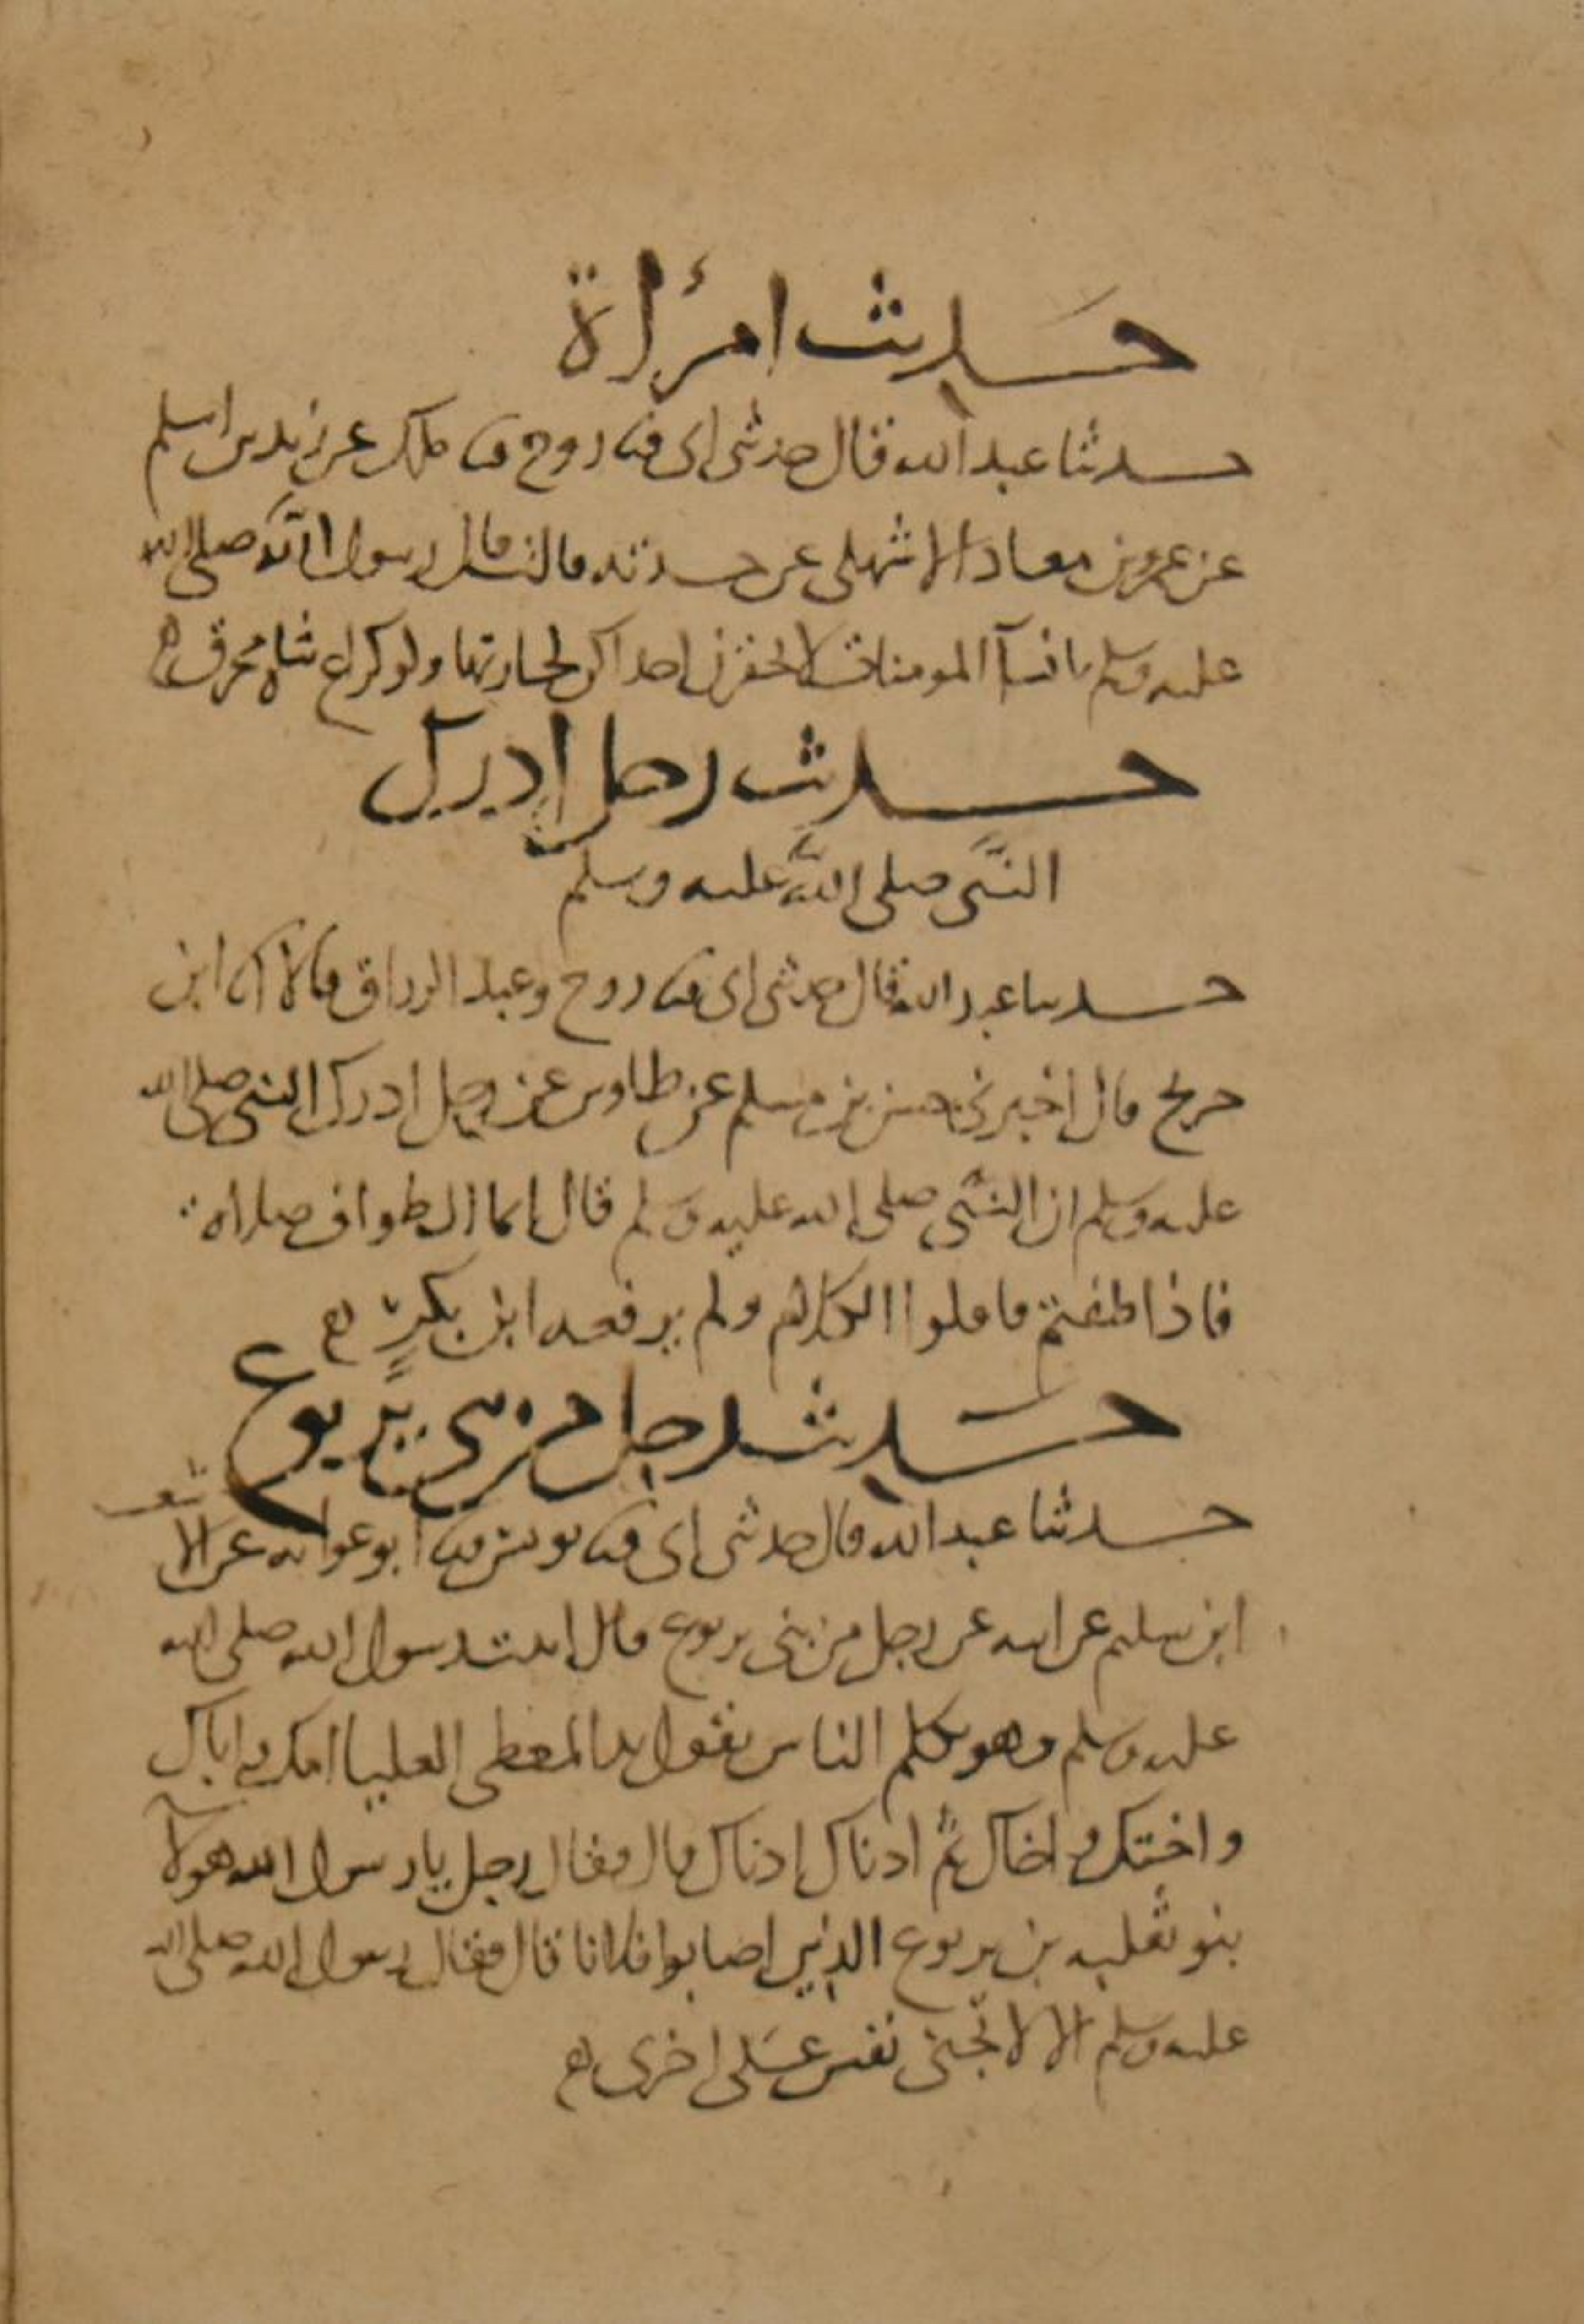 حديث امرأة
حدثنا عبد الله قال حدثنى ابى ثنا روح ثنا ملك عن زيد بن اسلم
عن عمرو بن معاذ الاشهلى عن جدته قالت قال رسول الله صلى الله
عليه وسلم يا نسآ المومنات لا تحقرن احداكن لجارتها ولو كراع شاه محرق
حديث رجل ادرك
النبى صلى الله عليه وسلم
حدثنا عبد الله قال حدثنى ابى ثنا روح وعبد الرزاق قالا انا ابن
جريج قال اخبرنى حسن بن مسلم عن طاوس عن رجل ادرك النبى صلى الله
عليه وسلم ان النبى صلى الله عليه وسلم قال انما الطواف صلاه
فاذا طفتم فاقلوا الكلام ولم يرفعه ابن بكر
حديث رجل من بنى يربوع
حدثنا عبد الله قال حدثنى ابى ثنا يونس ثنا ابو عوانه عن الاشعث
ابن سليم عن ابيه عن رجل من بنى يربوع قال اتيت رسول الله صلى الله
عليه وسلم وهو يكلم الناس يقول يد المعطى العليا امك و اباك
واختك و اخاك ثم ادناك ادناك قال فقال رجل يا رسول الله هولآ
بنو ثعلبه بن يربوع الذين اصابوا فلانا قال فقال رسول الله صلى الله
عليه وسلم الا لا تجنى نفس على اخرى